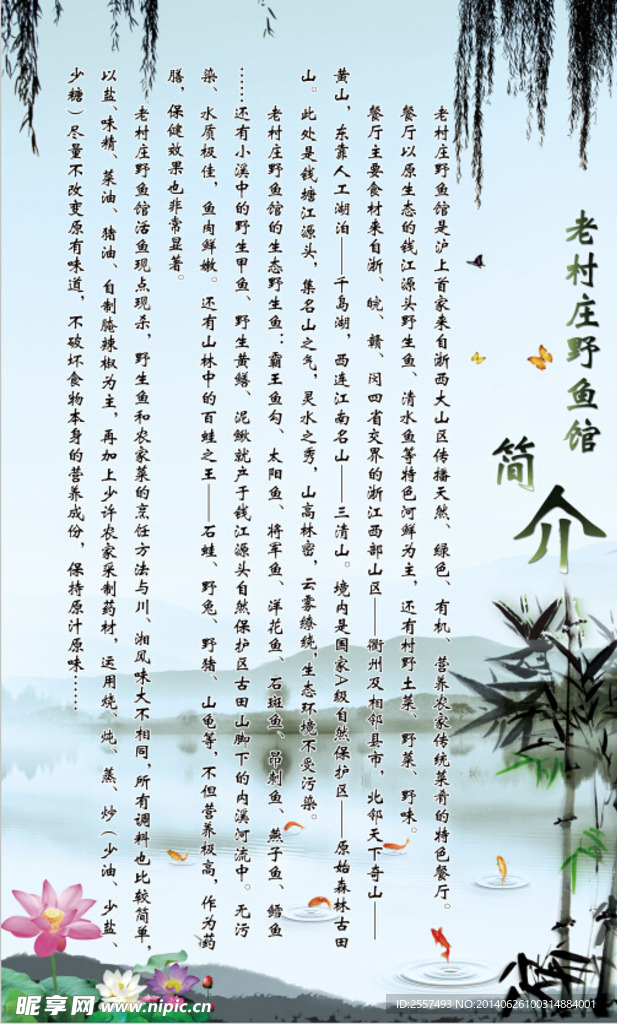 老村庄野鱼馆
简介
老村庄野鱼馆是沪上首家来自浙西大山区传播天然、绿色、有机、营养农家传统菜肴的特色餐厅。
餐厅以原生态的钱江源头野生鱼、清水鱼等特色河鲜为主，还有村野土菜、野菜、野味。
餐厅主要食材来自浙、皖、赣、闵四省交界的浙江西部山区——衢州及相邻县市，北邻天下奇山——
黄山，东靠人工湖泊——千岛湖，西连江南名山——三清山。境内是国家A级自然保护区——原始森林古田
山。此处是钱塘江源头，集名山之气，灵水之秀，山高林密，云雾缭绕，生态环境不受污染。
老村庄野鱼馆的生态野生鱼：霸王鱼勾、太阳鱼、将军鱼、洋花鱼、石斑鱼、昂刺鱼、燕子鱼、鳕鱼
……还有小溪中的野生甲鱼、野生黄鳝、泥鳅就产于钱江源头自然保护区古田山脚下的内溪河流中。无污
染、水质极佳，鱼肉鲜嫩。还有山林中的百蛙之王——石蛙、野兔、野猪、山龟等，不但营养极高，作为药
膳，保健效果也非常显著。
老村庄野鱼馆活鱼现点现杀，野生鱼和农家菜的烹饪方法与川、湘风味大不相同，所有调料也比较简单，
以盐、味精、菜油、猪油、自制腌辣椒为主，再加上少许农家采制药材，运用烧、炖、蒸、炒（少油、少盐、
少糖）尽量不改变原有味道，不破坏食物本身的营养成份，保持原汁原味……
昵享网 www.nipic.cn
ID:2557493 NO:20140626100314884001